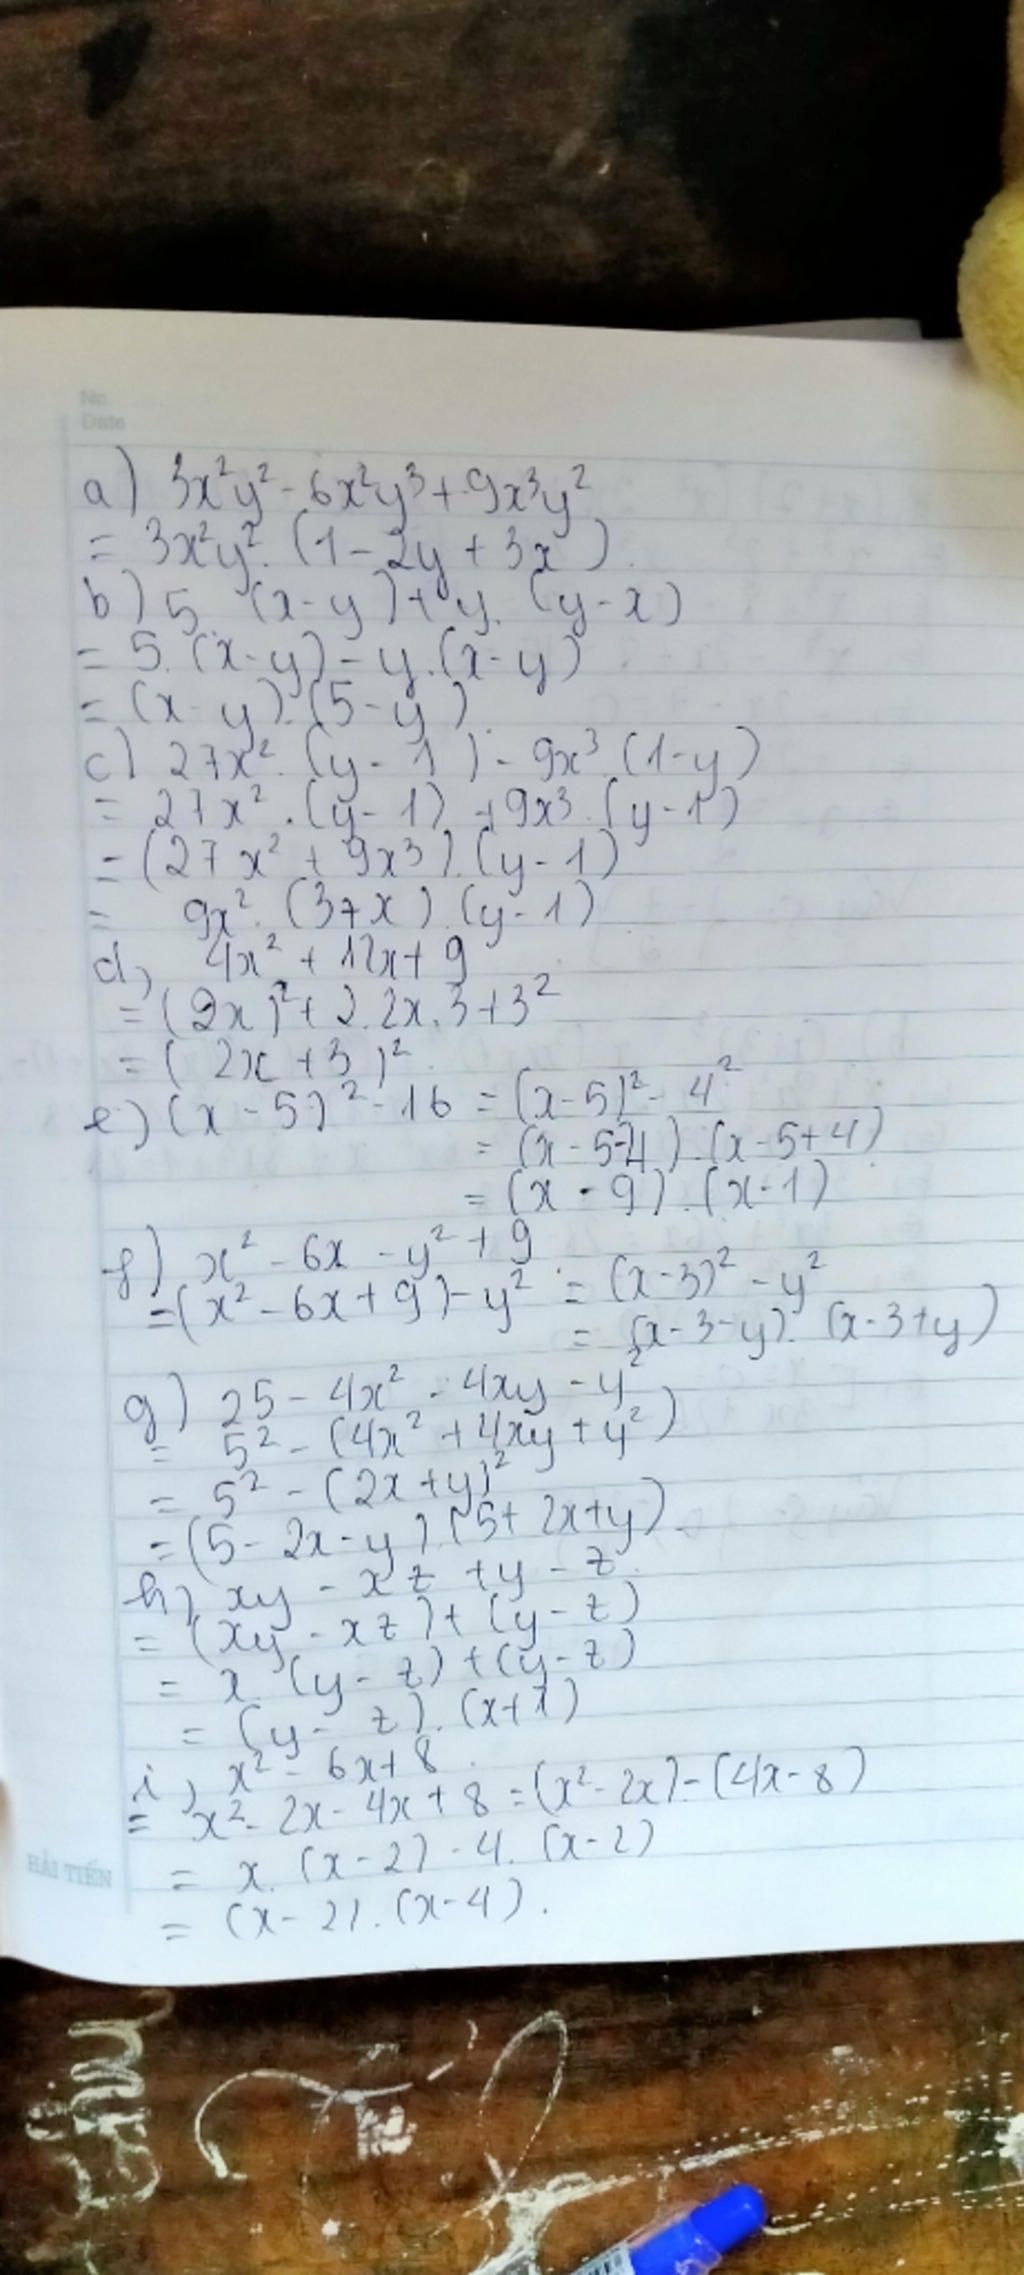 No.
Date
a) 3x²y² - 6x²y³ + 9x³y²
= 3x²y². (1 - 2y + 3x).
b) 5. (x-y) + y. (y-x)
= 5. (x-y) - y.(x-y)
= (x-y).(5-y)
c) 27x². (y-1) - 9x³.(1-y)
= 27x².(y-1) + 9x³.(y-1)
= (27x² + 9x³).(y-1)
= 9x². (3+x).(y-1)
d, 4x² + 12x + 9
= (2x)² + 2.2x.3 + 3²
= (2x + 3)².
e) (x-5)² - 16 = (x-5)² - 4²
= (x-5-4).(x-5+4)
= (x-9).(x-1)
f) x² - 6x - y² + 9
= (x² - 6x + 9) - y² = (x-3)² - y²
= (x-3-y). (x-3+y)
g) 25 - 4x² - 4xy - y²
= 5² - (4x² + 4xy + y²)
= 5² - (2x+y)²
= (5 - 2x - y).(5 + 2x+y)
h, xy - xz + y - z.
= (xy - xz) + (y-z)
= x. (y-z) + (y-z)
= (y-z). (x+1)
i, x² - 6x + 8.
= x² - 2x - 4x + 8 = (x² - 2x) - (4x - 8)
= x. (x-2) - 4. (x-2)
= (x-2).(x-4).
HẢI TIẾN